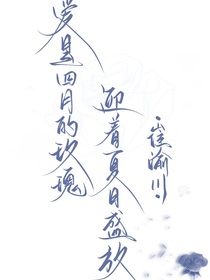 爱是四月的玫瑰
迎着夏日盛放
崔渝川